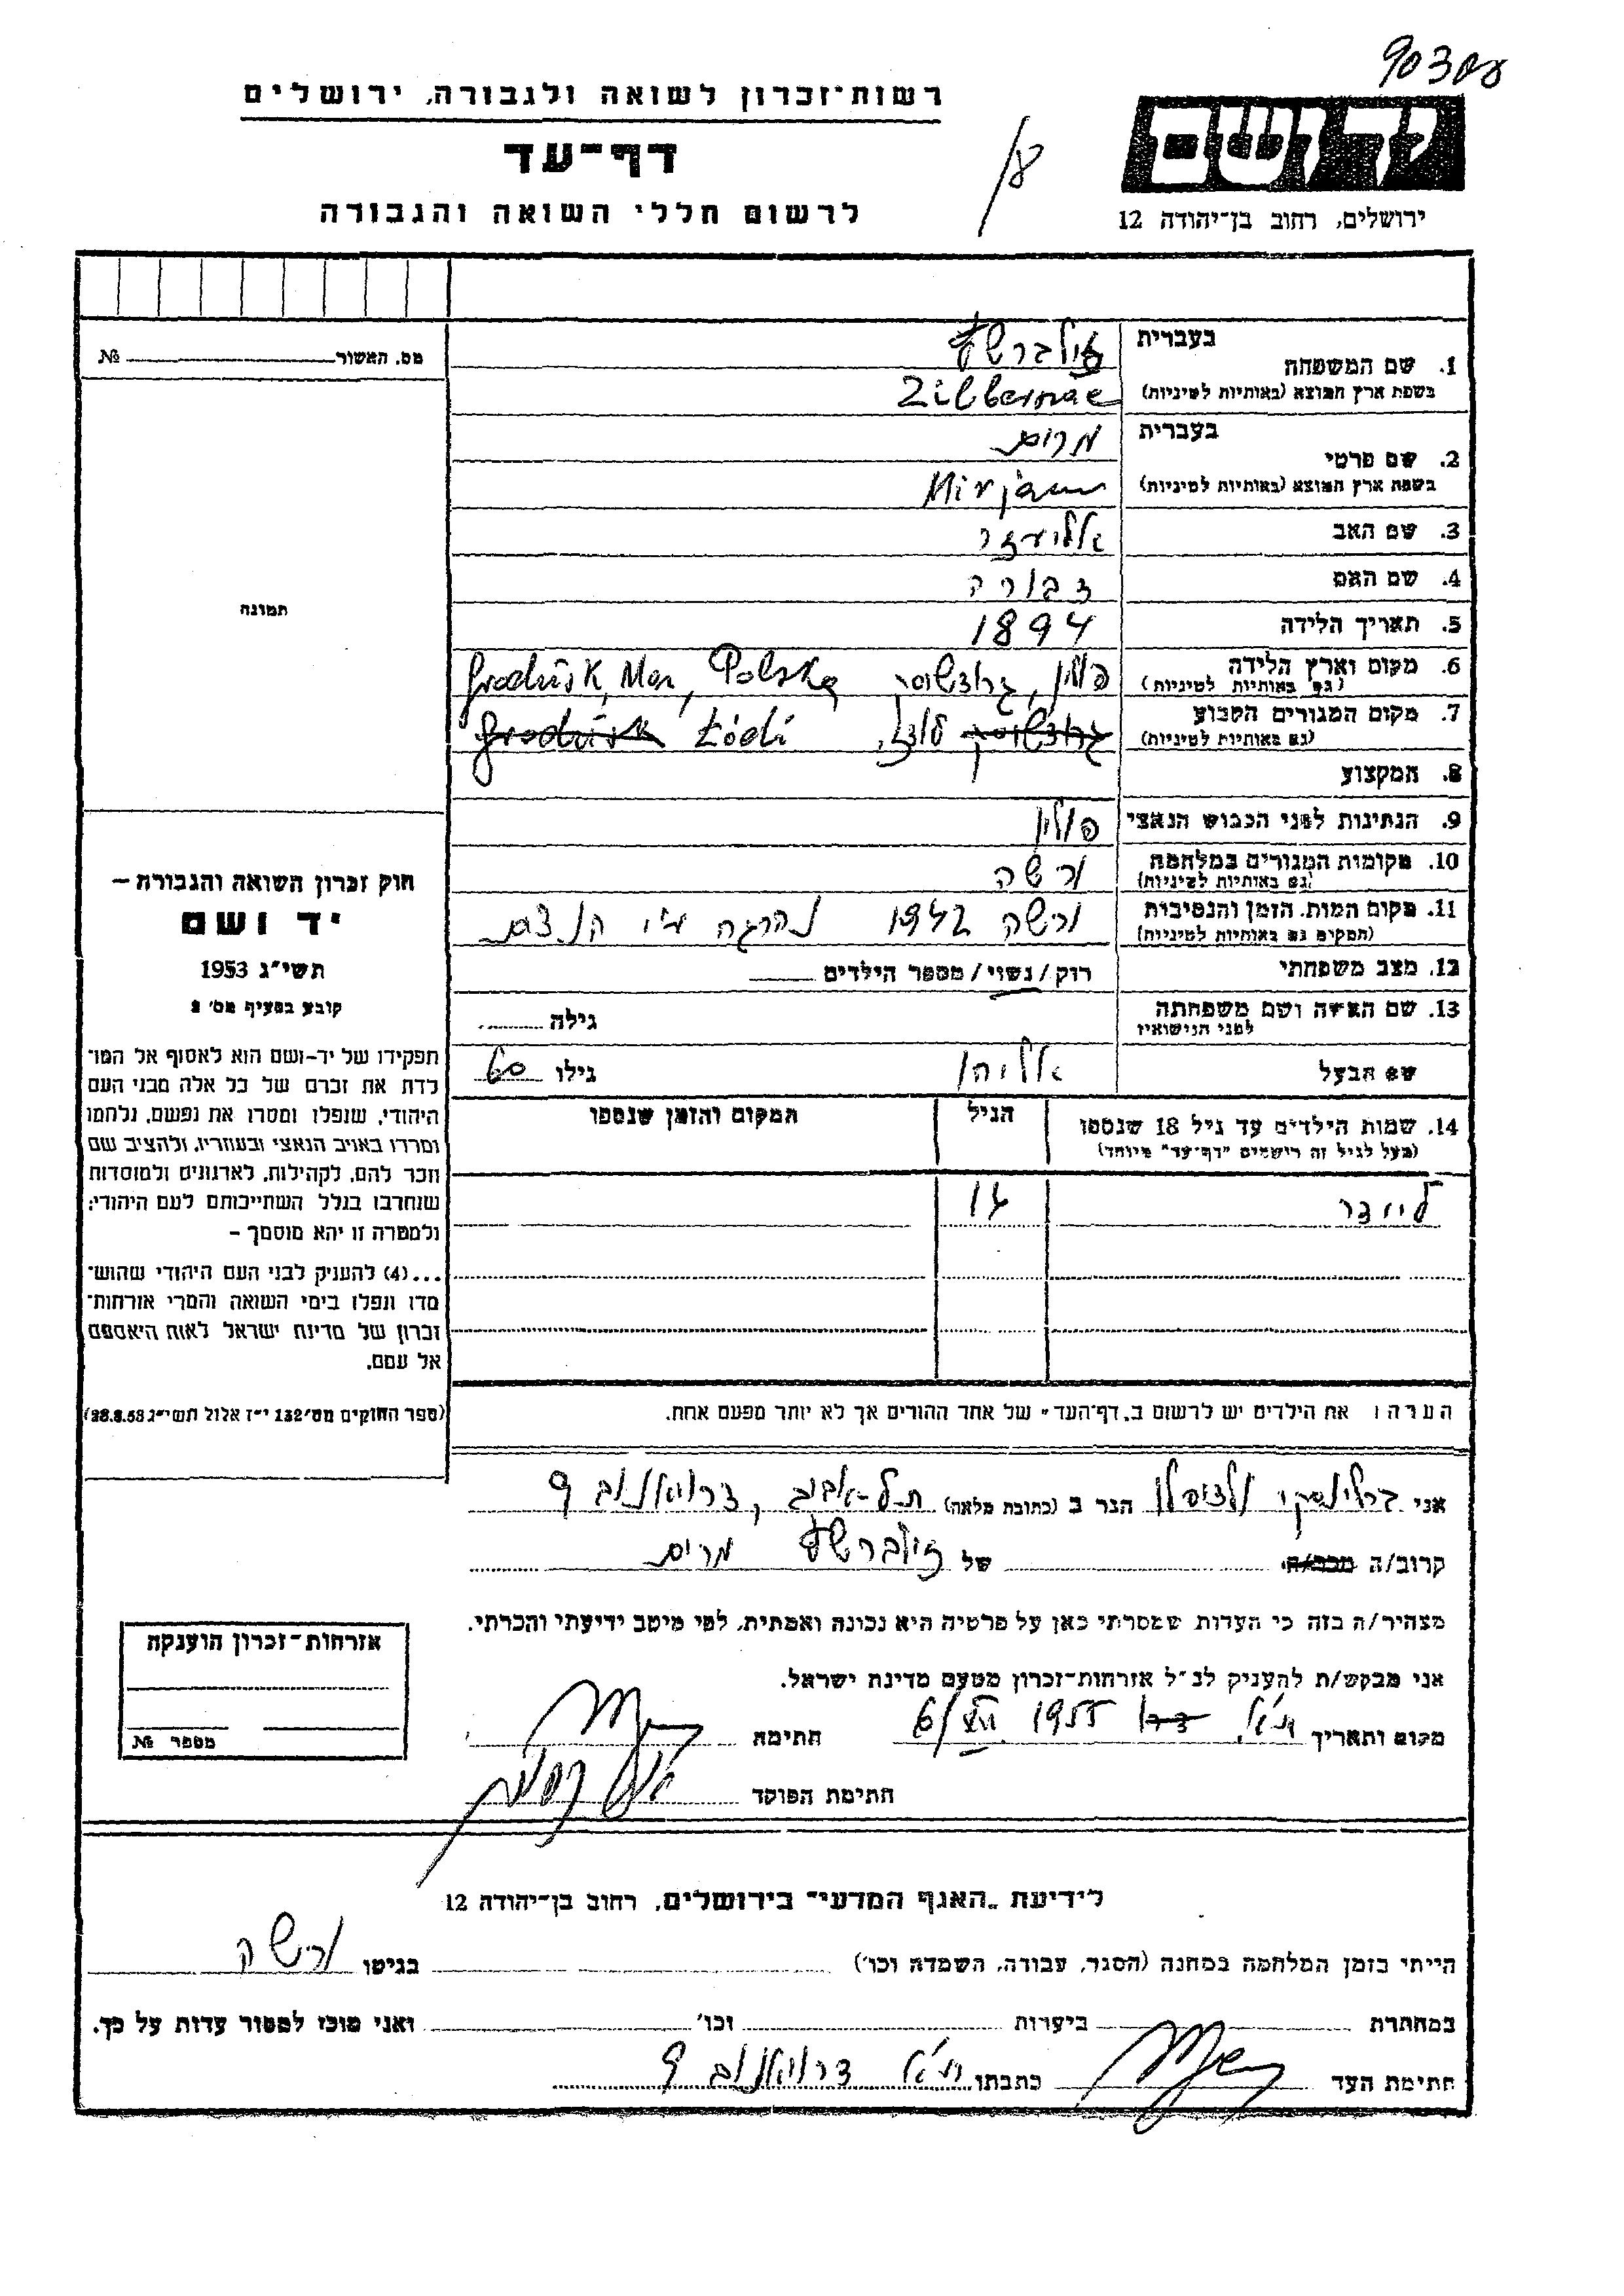 90308
רשות-זכרון לשואה ולגבורה, ירושלים
דף-עד
לרשום חללי השואה והגבורה
ידושם
ירושלים, רחוב בן-יהודה 12
מס. האשור № 
תמונה
בעברית
1. שם המשפחה
בשפת ארץ המוצא (באותיות לטיניות)
בעברית מרים
2. שם פרטי
בשפת ארץ המוצא (באותיות לטיניות) Mirjam
3. שם האב אליעזר
4. שם האם דבורה
5. תאריך הלידה 1894
6. מקום וארץ הלידה פולין, Polska
(גם באותיות לטיניות)
7. מקום המגורים הקבוע לודז, Łódź
(גם באותיות לטיניות)
8. המקצוע
9. הנתינות לפני הכבוש הנאצי פולין
10. מקומות המגורים במלחמה ורשה
(גם באותיות לטיניות)
11. מקום המות, הזמן והנסיבות ורשה 1942 נהרגה ע"י
(המקום גם באותיות לטיניות)
12. מצב משפחתי רוק/נשוי/מספר הילדים
13. שם האשה ושם משפחתה גילה
לפני הנישואין
שם הבעל אליהו גילו 60
14. שמות הילדים עד גיל 18 שנספו הגיל המקום והזמן שנספו
(מעל לגיל זה רושמים "דף-עד" מיוחד)
לייזר 17
הערה: את הילדים יש לרשום ב"דף-העד" של אחד ההורים אך לא יותר מפעם אחת.
חוק זכרון השואה והגבורה –
יד ושם
תשי"ג 1953
קובע בסעיף מס' 2
תפקידו של יד-ושם הוא לאסוף אל המו-
לדת את זכרם של כל אלה מבני העם
היהודי, שנפלו ומסרו את נפשם, נלחמו
ומרדו באויב הנאצי ובעוזריו, ולהציב שם
וזכר להם, לקהילות, לארגונים ולמוסדות
שנחרבו בגלל השתייכותם לעם היהודי;
ולמטרה זו יהא מוסמך –
...(4) להעניק לבני העם היהודי שהוש-
מדו ונפלו בימי השואה והמרי אזרחות-
זכרון של מדינת ישראל לאות היאספם
אל עמם.
(ספר החוקים מס' 132 י"ז אלול תשי"ג 28.8.53)
אני ברלינסקי הגר ב (כתובת מלאה) תל-אביב, דרויאנוב 9
קרוב/ה מכר/ה של מרים
מצהיר/ה בזה כי העדות שמסרתי כאן על פרטיה היא נכונה ואמתית, לפי מיטב ידיעתי והכרתי.
אני מבקש/ת להעניק לנ"ל אזרחות-זכרון מטעם מדינת ישראל.
מקום ותאריך ת"א 1955 חתימה
חתימת הפוקד
אזרחות-זכרון הוענקה
מספר №
לידיעת "האגף המדעי" בירושלים, רחוב בן-יהודה 12
הייתי בזמן המלחמה במחנה (הסגר, עבודה, השמדה וכו') בגיטו ורשה
במחתרת ביערות וכו' ואני מוכן למסור עדות על כך.
חתימת העד כתבתו ת"א דרויאנוב 9